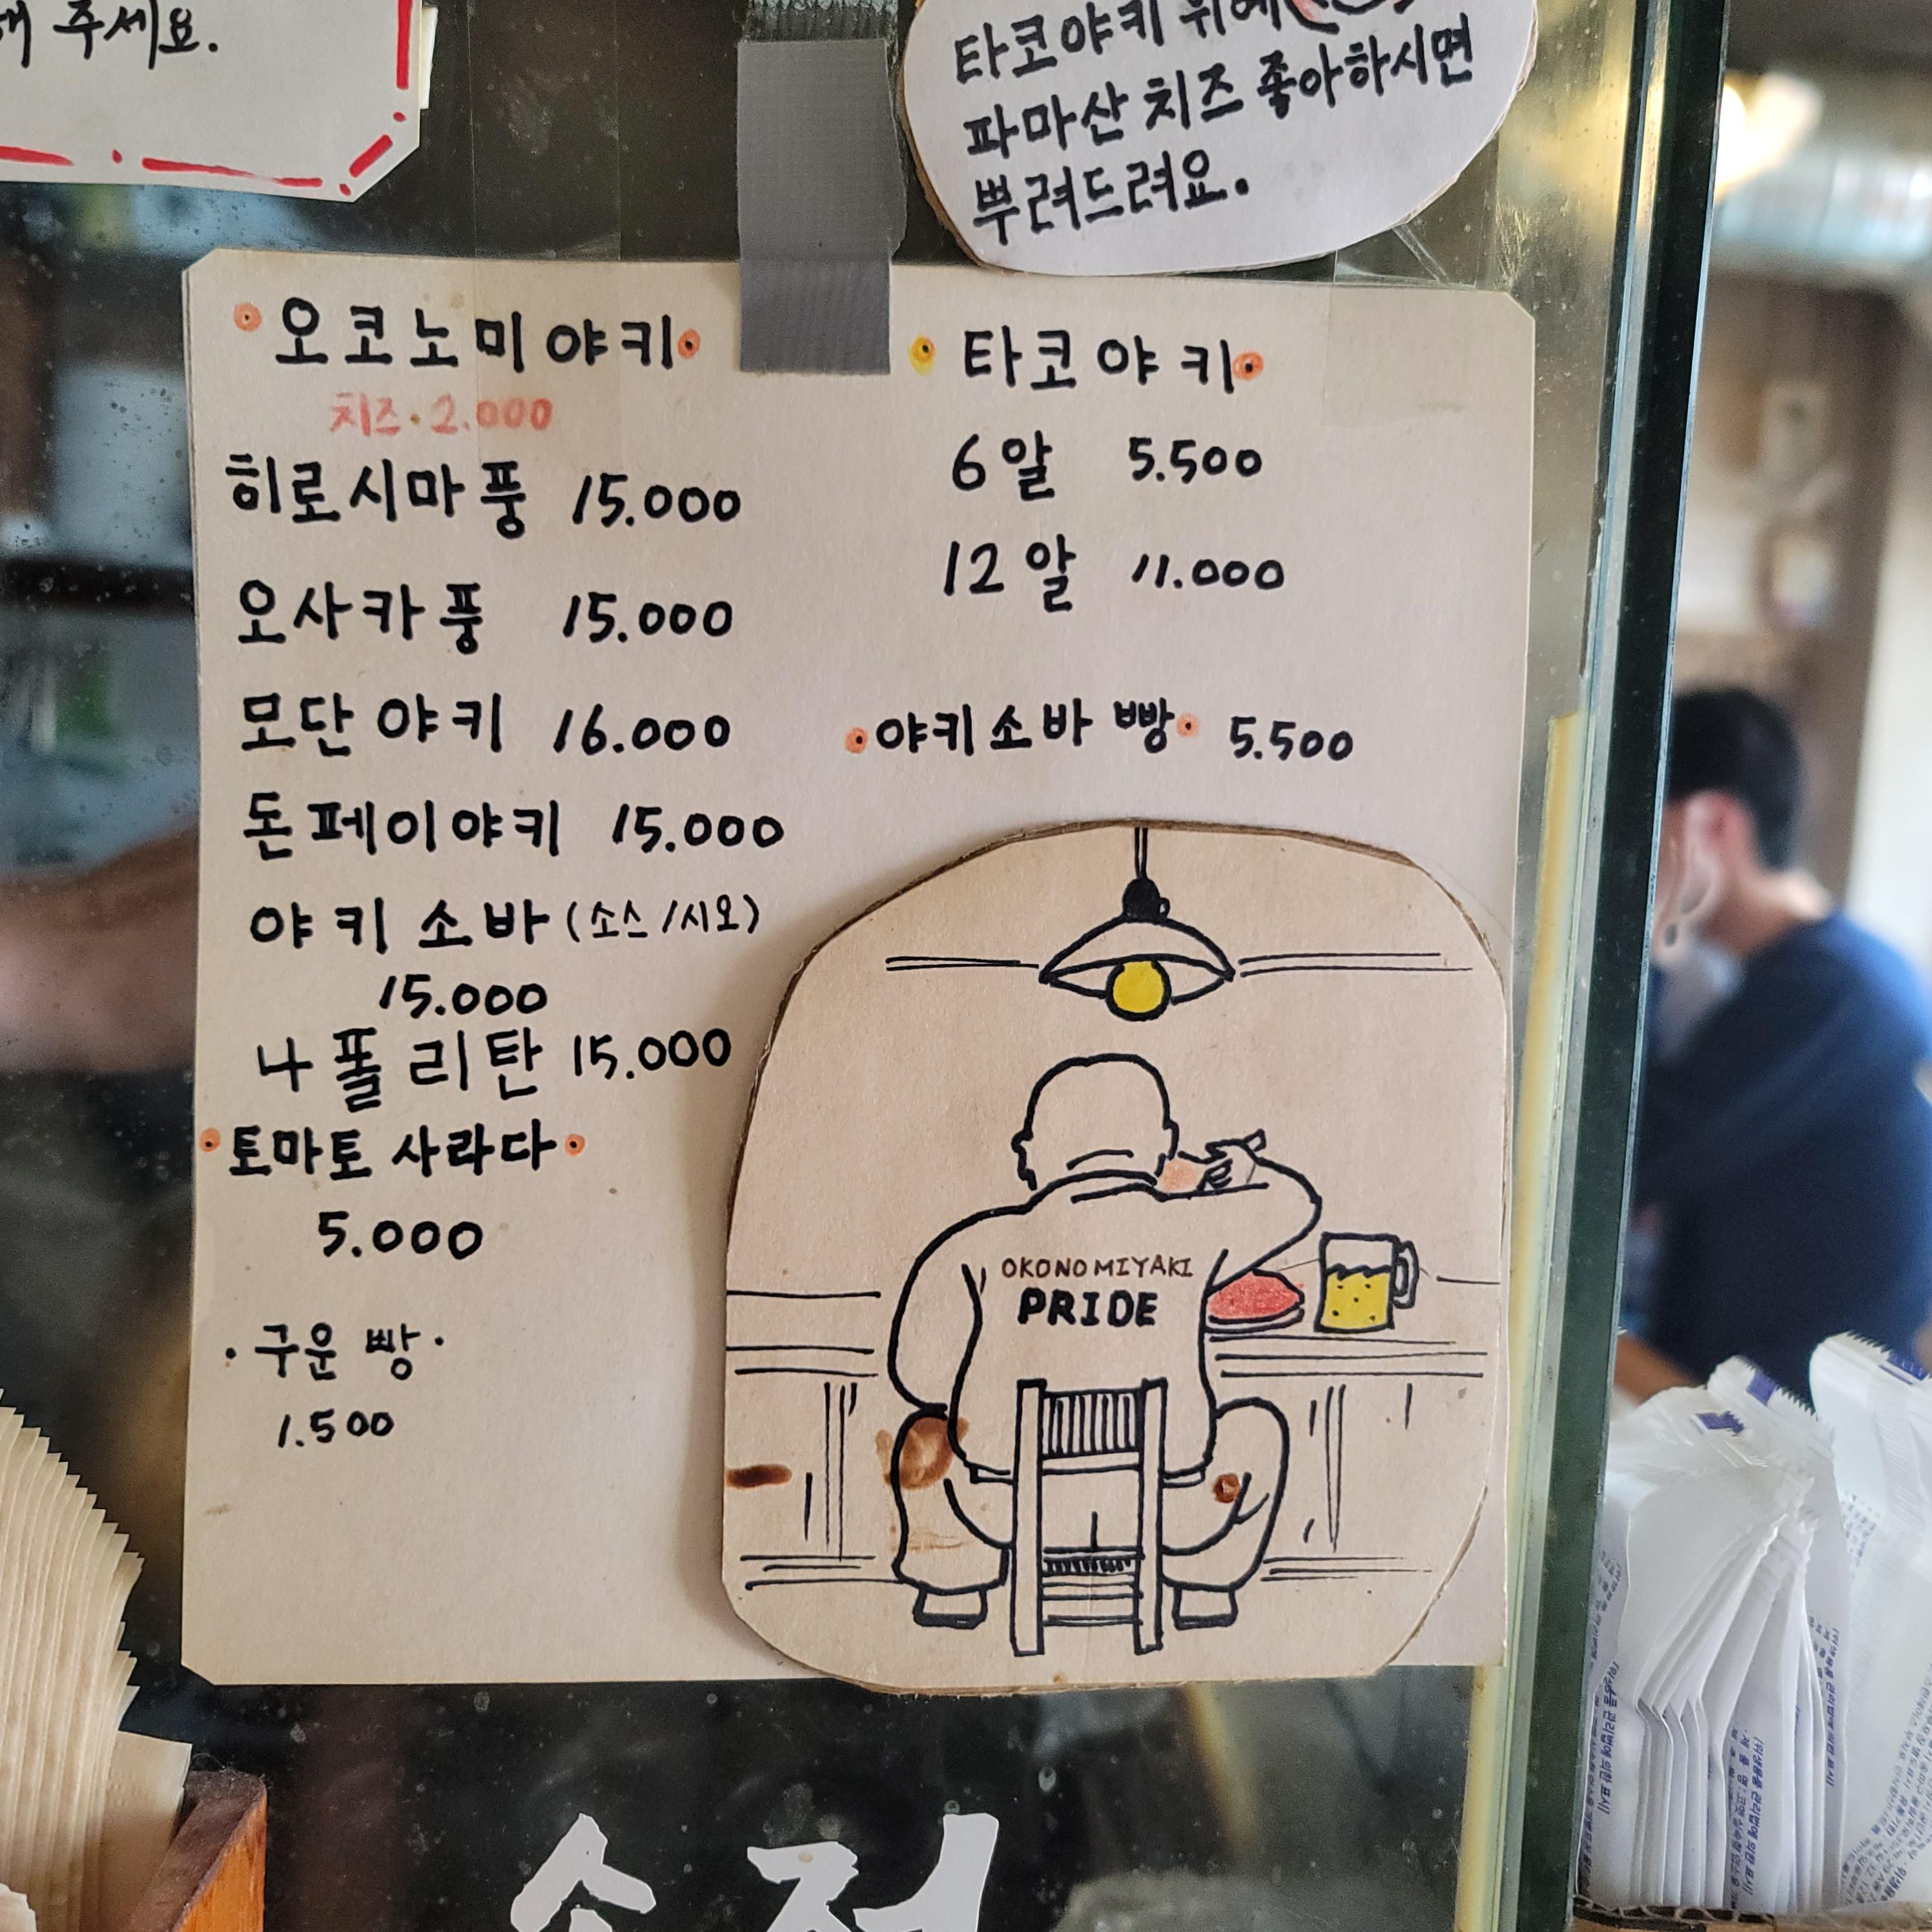 주세요.
타코야키 위에
파마산 치즈 좋아하시면
뿌려드려요.
오코노미야키
치즈·2.000
히로시마풍 15.000
오사카풍 15.000
모단야키 16.000
돈페이야키 15.000
야키소바 (소스/시오)
15.000
나폴리탄 15.000
토마토 사라다
5.000
·구운 빵·
1.500
타코야키
6알 5.500
12알 11.000
야키소바 빵 5.500
OKONOMIYAKI
PRIDE